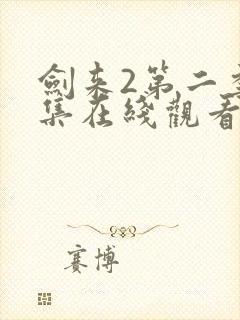 劍来2第二季
集在綫觀看
賽博